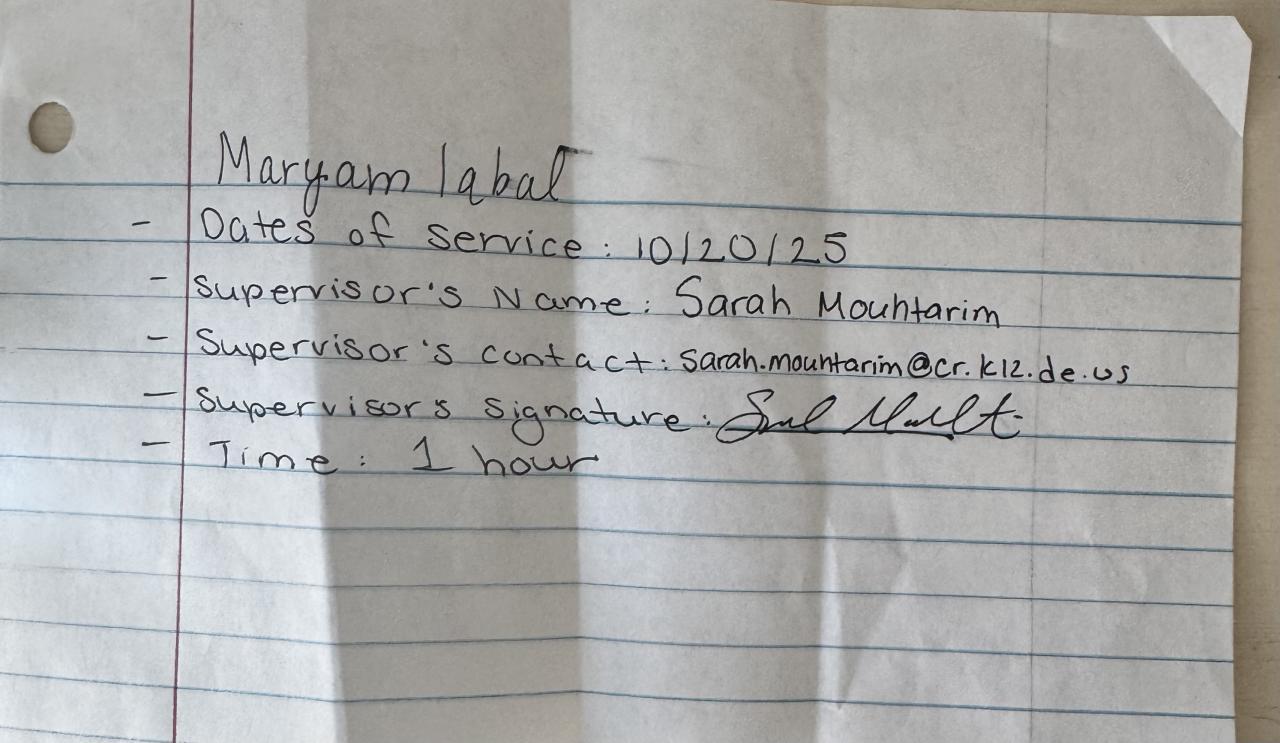 Maryam Iqbal
- Dates of service: 10/20/25
- Supervisor's Name: Sarah Mouhtarim
- Supervisor's contact: sarah.mouhtarim@cr.k12.de.us
- Supervisor's signature:
- Time: 1 hour